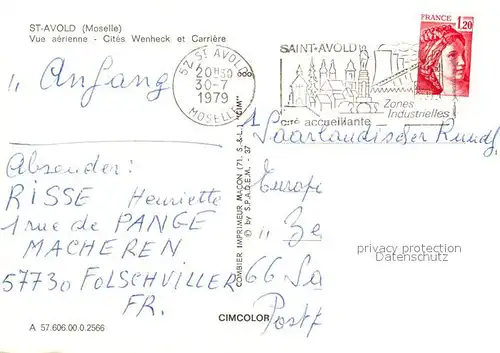 ST-AVOLD (Moselle)
Vue aérienne - Cités Wenheck et Carrière
52 ST AVOLD
20H30
30-7
1979
MOSELLE
SAINT-AVOLD
Zones
Industrielles
cité accueillante
FRANCE
1,20
„ Anfang
Absender:
RISSE Henriette
1 rue de PANGE
MACHEREN
57730 FOLSCHVILLER
FR.
Saarländischer Rundf
Europe
„ Ze
66 Sa
Postf
COMBIER IMPRIMEUR MACON (71. S.-&-L. "CIM"
© by S.P.A.D.E.M. - 37
privacy protection
Datenschutz
CIMCOLOR
A 57.606.00.0.2566